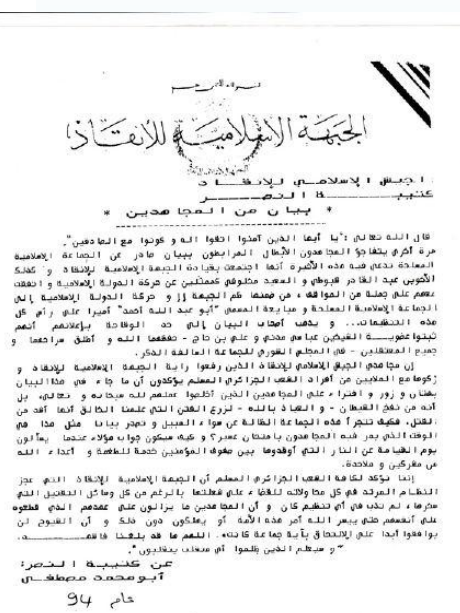 الجبهة الاسلامية للانقاذ
الجيش الإسلامي للإنقاذ
كتيبة النصر
* بيان من المجاهدين *
قال الله تعالى :"يا أيها الذين آمنوا اتقوا الله و كونوا مع الصادقين".
مرة أخرى يتفاجؤ المجاهدون الأبطال المرابطون ببيان صادر عن الجماعة الاسلامية
المسلحة تدعي فيه هذه الأخيرة أنها اجتمعت بقيادة الجبهة الإسلامية للإنقاذ و كذلك
الأخوين عبد القادر شبوطي و السعيد مخلوفي كممثلين عن حركة الدولة الإسلامية و اتفقت
معهم على جملة من المواقف، من ضمنها ضم الجبهة و حركة الدولة الإسلامية إلى
الجماعة الإسلامية المسلحة و مبايعة المسمى "أبو عبد الله أحمد" أميرا على رأس كل
هذه التنظيمات... و يذهب أصحاب البيان إلى حد الوقاحة بإعلانهم أنهم
ثبتوا عضوية الشيخين عباسي مدني و علي بن حاج - حفظهما الله و أطلق سراحهما و
جميع المعتقلين - في المجلس الشوري للجماعة السالفة الذكر.
إن مجاهدي الجيش الإسلامي للإنقاذ الذين رفعوا راية الجبهة الإسلامية للإنقاذ و
زكوها مع الملايين من أفراد الشعب الجزائري المسلم يؤكدون أن ما جاء في هذا البيان
بهتان و زور و افتراء على المجاهدين الذين أخلصوا عملهم لله سبحانه و تعالى، بل
أنه من نفخ الشيطان - و العياذ بالله - لزرع الفتن التي علمنا الخالق أنها أشد من
القتل، فكيف تتجرأ هذه الجماعة الضالة عن سواء السبيل و تصدر بيانا مثل هذا في
الوقت الذي يمر فيه المجاهدون بامتحان عسير؟ و كيف سيكون جواب هؤلاء عندما يسألون
يوم القيامة عن النار التي أوقدوها بين صفوف المؤمنين خدمة للطغمة و أعداء الله
من مشركين و ملاحدة.
إننا نؤكد لكافة الشعب الجزائري المسلم أن الجبهة الإسلامية للإنقاذ التي عجز
النظام المرتد في كل محاولاته للقضاء على شعلتها بالرغم من كل وسائل التقتيل التي
سخرها، لم تذب في أي تنظيم كان و أن المجاهدين ما يزالون على عهدهم الذي قطعوه
على أنفسهم حتى ييسر الله أمر هذه الأمة أو يهلكون دون ذلك و أن الشيوخ لن
يوافقوا أبدا على الالتحاق بأية جماعة كانت. اللهم ما قد بلغنا فاشهد.
"و سيعلم الذين ظلموا أي منقلب ينقلبون".
عن كتيبة النصر:
أبو محمد مصطفى
عام 94